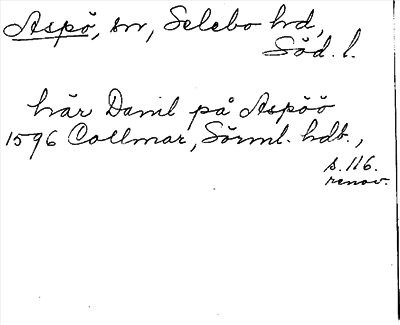 Aspö, sn, Selebo hd,
Söd. l.
här Danil på Aspöö
1596 Collmar, Sörml. hdb.,
s. 116.
renov.